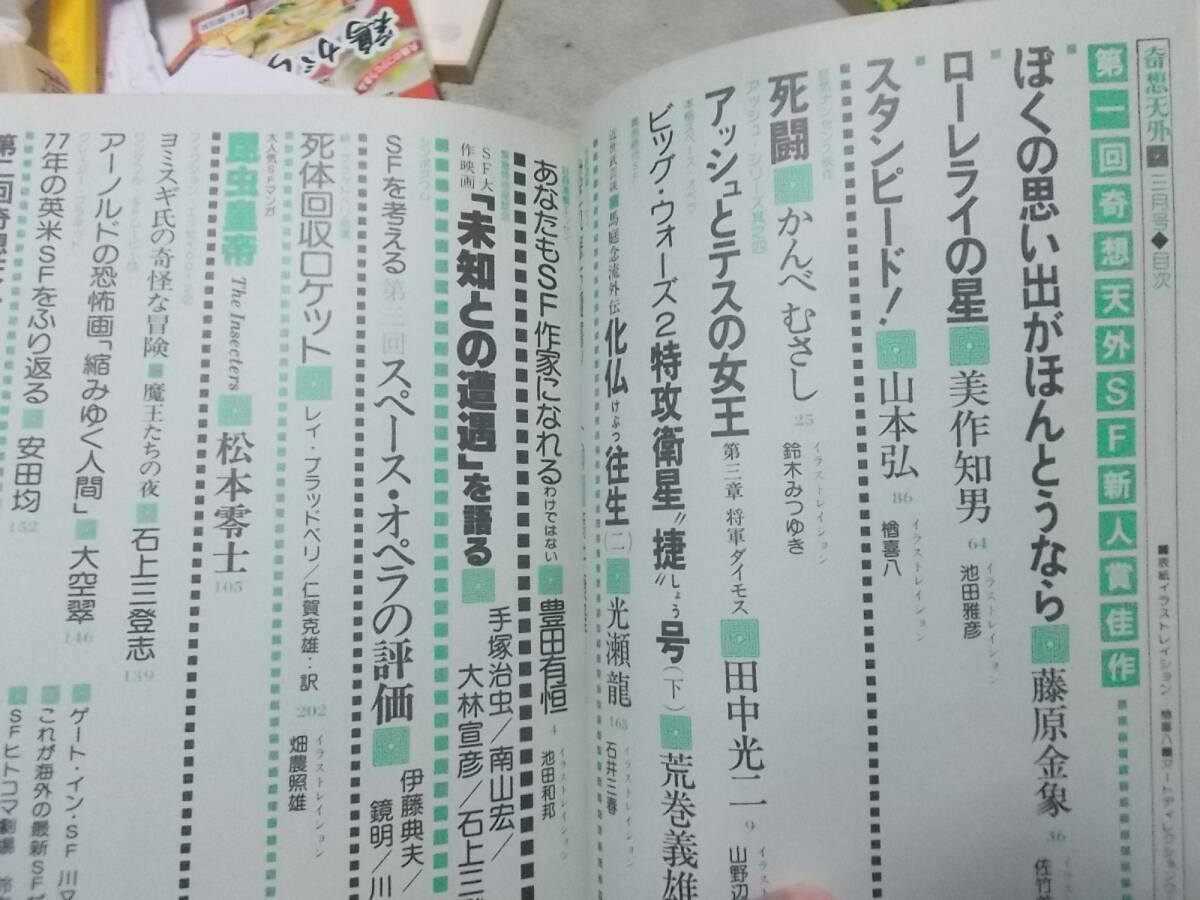 奇想天外 三月号◆目次
■表紙イラストレイション
第一回奇想天外SF新人賞佳作
ぼくの思い出がほんとうなら 藤原金象 36
ローレライの星 美作知男 64 イラストレイション 池田雅彦
スタンピード! 山本弘 86 イラストレイション 楢喜八
死闘 かんべむさし 25 イラストレイション 鈴木みつゆき
アッシュ・シリーズ其之四
アッシュとテスの女王 第三章 将軍ダイモス 田中光二 9 イラストレイション 山野辺
本格スペース・オペラ
ビッグ・ウォーズ2特攻衛星〝捷〟しょう号(下) 荒巻義雄
近世武芸談 馬庭念流外伝 化仏けぶつ往生(二) 光瀬龍 163 イラストレイション 石井三春
あなたもSF作家になれるわけではない 豊田有恒 4 イラストレイション 池田和邦
SF大作映画「未知との遭遇」を語る 手塚治虫/南山宏/大林宣彦/石上三
シンポジウム
SFを考える 第三回 スペース・オペラの評価 伊藤典夫/鏡明/川
死体回収ロケット レイ・ブラッドベリ/仁賀克雄・・訳 202 イラストレイション 畑農照雄
大人気SFマンガ
昆虫皇帝 The Insecters 松本零士 105
ヨミスギ氏の奇怪な冒険 魔王たちの夜 石上三登志 139
アーノルドの恐怖画「縮みゆく人間」 大空翠 146
77年の英米SFをふり返る 安田均 152
第二回奇想天
ゲート・イン・SF 川又
これが海外の最新SFだ
SFヒトコマ劇場
鶏がら